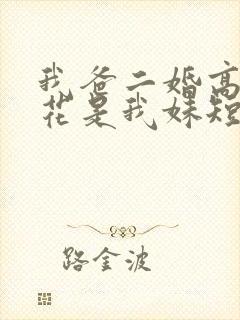 我爸二婚高
花是我妹短
路金波